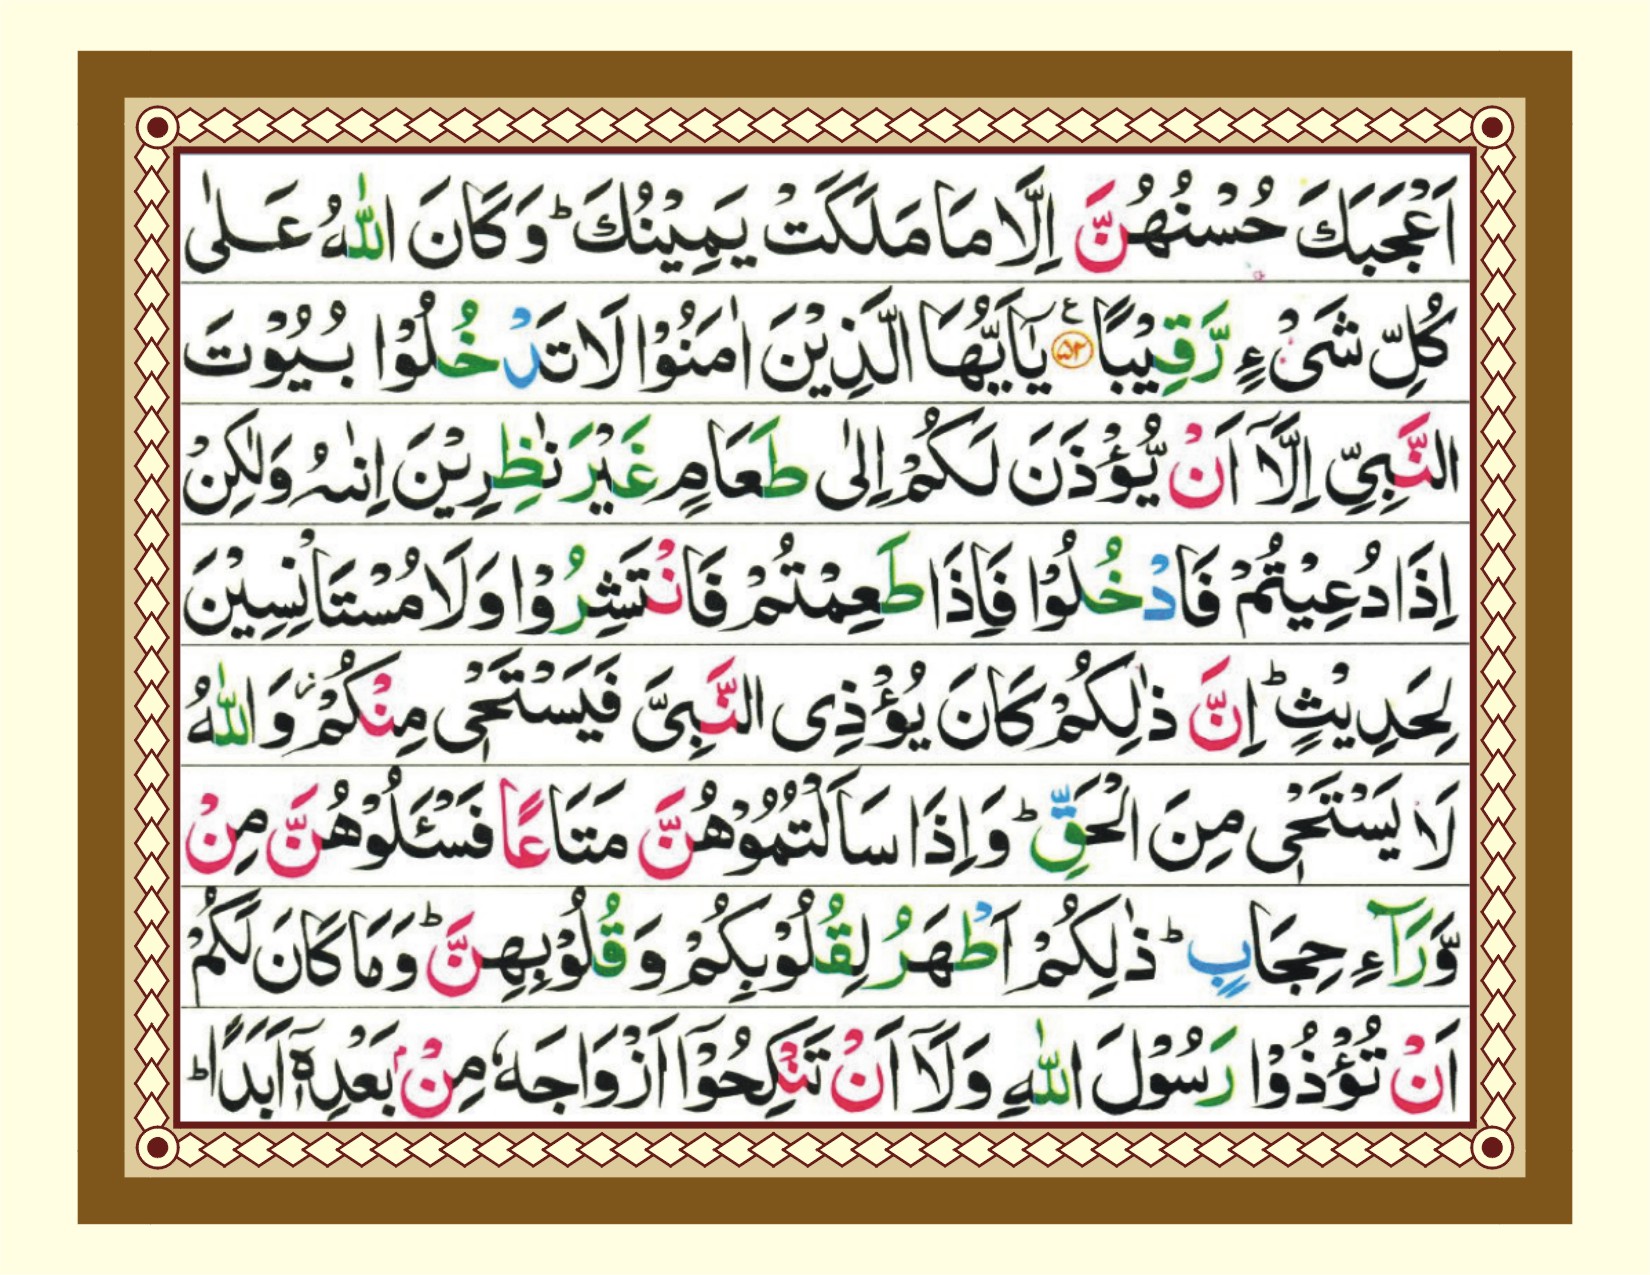 اَعۡجَبَكَ حُسۡنُهُنَّ اِلَّا مَا مَلَكَتۡ يَمِيۡنُكَ ؕ وَكَانَ اللّٰهُ عَلٰى
كُلِّ شَىۡءٍ رَّقِيۡبًا ﴿۵۲﴾ ع يٰۤاَيُّهَا الَّذِيۡنَ اٰمَنُوۡا لَا تَدۡخُلُوۡا بُيُوۡتَ
النَّبِىِّ اِلَّاۤ اَنۡ يُّؤۡذَنَ لَـكُمۡ اِلٰى طَعَامٍ غَيۡرَ نٰظِرِيۡنَ اِنٰٮهُ وَلٰـكِنۡ
اِذَا دُعِيۡتُمۡ فَادۡخُلُوۡا فَاِذَا طَعِمۡتُمۡ فَانۡتَشِرُوۡا وَلَا مُسۡتَاۡنِسِيۡنَ
لِحَـدِيۡثٍ ؕ اِنَّ ذٰلِكُمۡ كَانَ يُؤۡذِى النَّبِىَّ فَيَسۡتَحۡىٖ مِنۡكُمۡ ز وَاللّٰهُ
لَا يَسۡتَحۡىٖ مِنَ الۡحَـقِّ ؕ وَاِذَا سَاَلۡتُمُوۡهُنَّ مَتَاعًا فَسۡـئَلُوۡهُنَّ مِنۡ
وَّرَآءِ حِجَابٍ ؕ ذٰلِكُمۡ اَطۡهَرُ لِقُلُوۡبِكُمۡ وَقُلُوۡبِهِنَّ ؕ وَمَا كَانَ لَـكُمۡ
اَنۡ تُؤۡذُوۡا رَسُوۡلَ اللّٰهِ وَلَاۤ اَنۡ تَـنۡكِحُوۡۤا اَزۡوَاجَهٗ مِنۡۢ بَعۡدِهٖۤ اَبَدًا ؕ